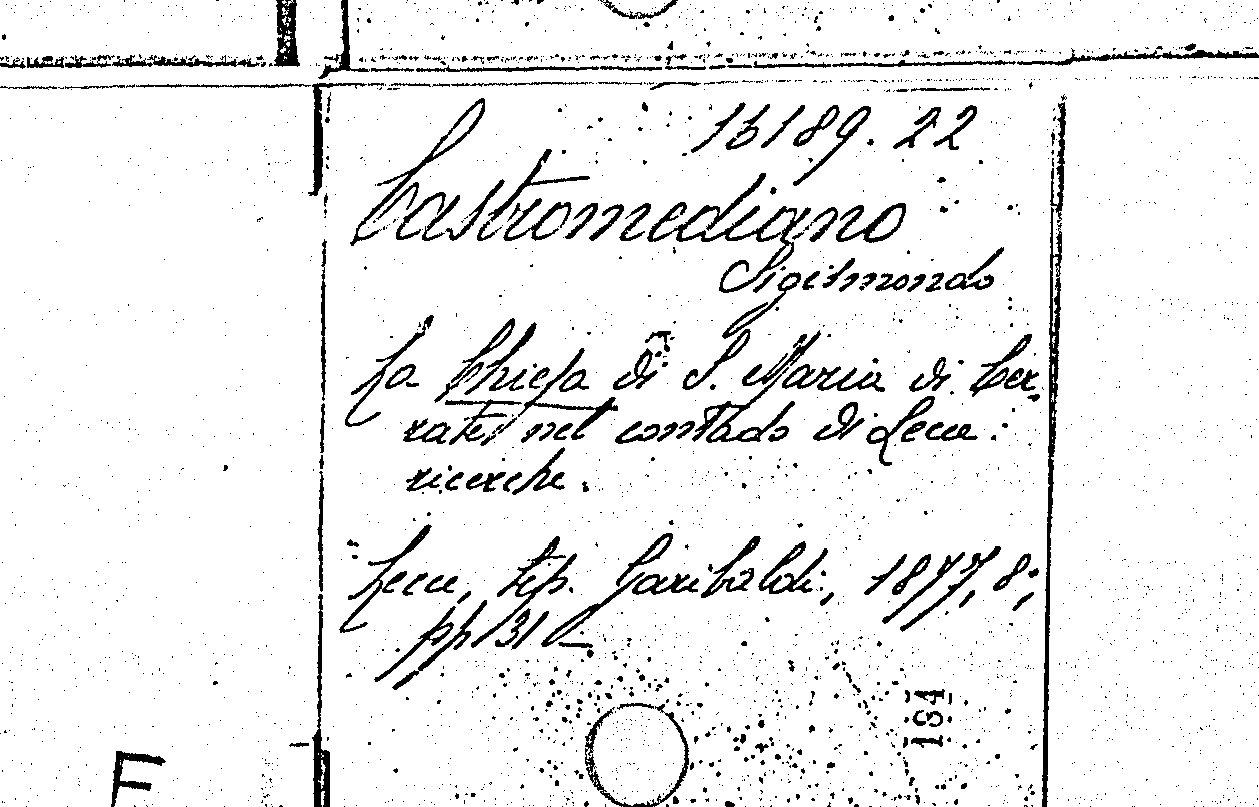 13189.22
Castromediano
Sigismondo
La Chiesa di S. Maria di Cer-
rate nel contado di Lecce:
ricerche.
Lecce, tip. Garibaldi, 1877, 8°;
pp. 31
184
F